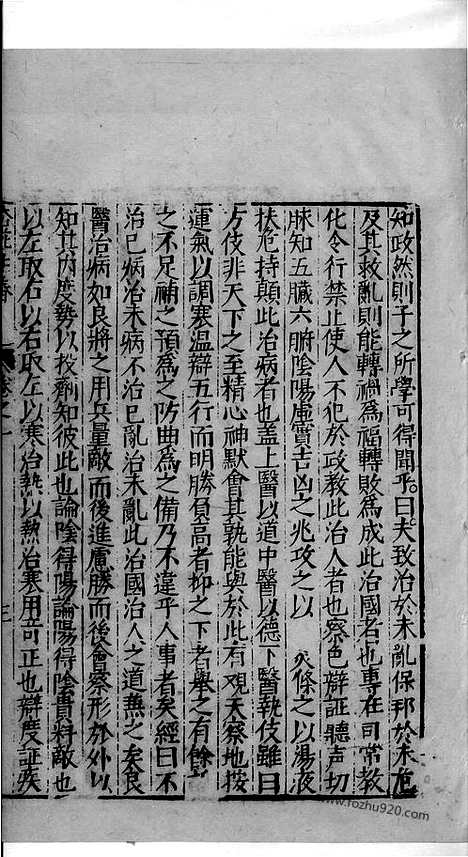 知政然則子之所學可得聞乎曰夫致治於未亂保邦於未危
及其救亂則能轉禍為福轉敗為成此治國者也專在司常教
化令行禁止使人不犯於政教此治人者也察色辯証聽聲切
脉知五臟六腑陰陽虛實吉凶之兆攻之以 火條之以湯液
扶危持顛此治病者也盖上醫以道中醫以德下醫執伎雖曰
方伎非天下之至精心神默會其孰能與於此有观天察地按
運氣以調寒温辯五行而明勝負高者抑之下者舉之有餘
之不足補之預為之防曲為之備乃不違乎人事者矣經曰不
治已病治未病不治已亂治未亂此治國治人之道蕪之矣良
醫治病如良將之用兵量敵而後進慮勝而後會察形於外以
知其内度勢以投劑知彼此也論陰得陽論陽得陰貴料敵也
以左取右以右取左以寒治熱以熱治寒用奇正也辯度証疾
卷之一 三
www.fozhu920.com